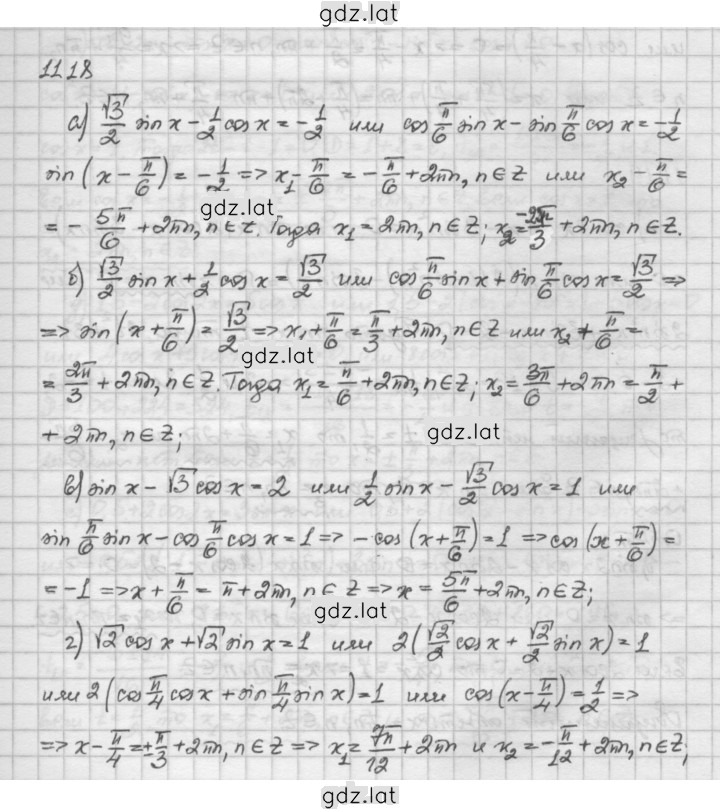 gdz.lat
11.18
а) √3/2 sin x - 1/2 cos x = -1/2 или cos π/6 sin x - sin π/6 cos x = -1/2
sin(x - π/6) = -1/2 => x₁ - π/6 = -π/6 + 2πn, n∈Z или x₂ - π/6 =
gdz.lat
= -5π/6 + 2πn, n∈Z. Тогда x₁ = 2πn, n∈Z; x₂ = -2π/3 + 2πn, n∈Z.
б) √3/2 sin x + 1/2 cos x = √3/2 или cos π/6 sin x + sin π/6 cos x = √3/2 =>
=> sin(x + π/6) = √3/2 => x₁ + π/6 = π/3 + 2πn, n∈Z или x₂ + π/6 =
gdz.lat
= 2π/3 + 2πn, n∈Z. Тогда x₁ = π/6 + 2πn, n∈Z; x₂ = 3π/6 + 2πn = π/2 +
+ 2πn, n∈Z;
gdz.lat
в) sin x - √3 cos x = 2 или 1/2 sin x - √3/2 cos x = 1 или
sin π/6 sin x - cos π/6 cos x = 1 => -cos(x + π/6) = 1 => cos(x + π/6) =
= -1 => x + π/6 = π + 2πn, n∈Z => x = 5π/6 + 2πn, n∈Z;
gdz.lat
г) √2 cos x + √2 sin x = 1 или 2(√2/2 cos x + √2/2 sin x) = 1
или 2(cos π/4 cos x + sin π/4 sin x) = 1 или cos(x - π/4) = 1/2 =>
=> x - π/4 = ±π/3 + 2πn, n∈Z => x₁ = 7π/12 + 2πn и x₂ = -π/12 + 2πn, n∈Z;
gdz.lat